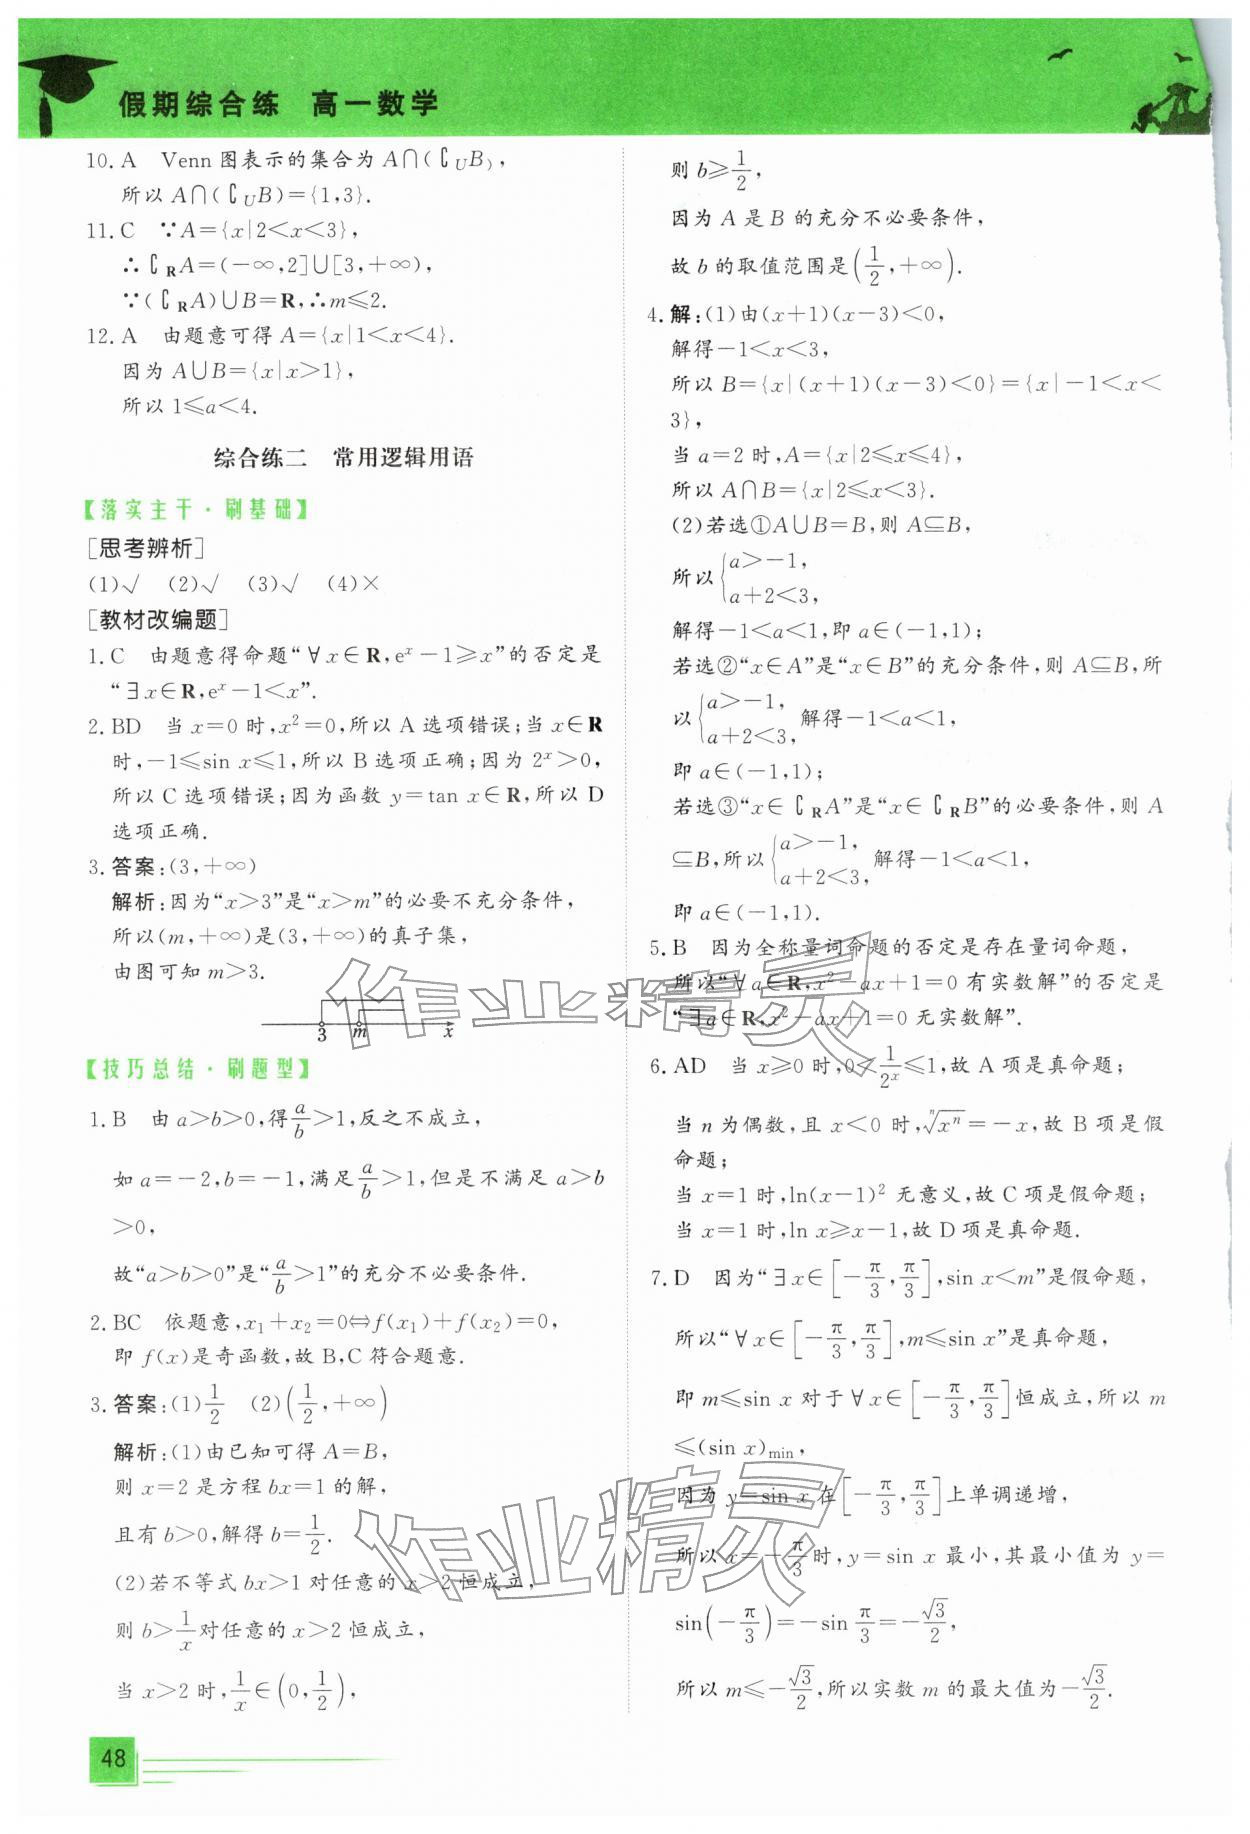 假期综合练 高一数学
10. A Venn 图表示的集合为 A∩(∁UB),
所以 A∩(∁UB)={1,3}.
11. C ∵A={x|2<x<3},
∴∁RA=(-∞,2]∪[3,+∞),
∵(∁RA)∪B=R,∴m≤2.
12. A 由题意可得 A={x|1<x<4}.
因为 A∪B={x|x>1},
所以 1≤a<4.
综合练二 常用逻辑用语
【落实主干·刷基础】
[思考辨析]
(1)√ (2)√ (3)√ (4)×
[教材改编题]
1. C 由题意得命题“∀x∈R,e^x-1≥x”的否定是
“∃x∈R,e^x-1<x”.
2. BD 当 x=0 时,x²=0,所以 A 选项错误;当 x∈R
时,-1≤sin x≤1,所以 B 选项正确;因为 2^x>0,
所以 C 选项错误;因为函数 y=tan x∈R,所以 D
选项正确.
3. 答案:(3,+∞)
解析:因为“x>3”是“x>m”的必要不充分条件,
所以(m,+∞)是(3,+∞)的真子集,
由图可知 m>3.
3 m x
【技巧总结·刷题型】
1. B 由 a>b>0,得a/b>1,反之不成立,
如 a=-2,b=-1,满足a/b>1,但是不满足 a>b
>0,
故“a>b>0”是“a/b>1”的充分不必要条件.
2. BC 依题意,x₁+x₂=0⇔f(x₁)+f(x₂)=0,
即 f(x)是奇函数,故 B,C 符合题意.
3. 答案:(1)1/2 (2)(1/2,+∞)
解析:(1)由已知可得 A=B,
则 x=2 是方程 bx=1 的解,
且有 b>0,解得 b=1/2.
(2)若不等式 bx>1 对任意的 x>2 恒成立,
则 b>1/x对任意的 x>2 恒成立,
当 x>2 时,1/x∈(0,1/2),
48
则 b≥1/2,
因为 A 是 B 的充分不必要条件,
故 b 的取值范围是(1/2,+∞).
4. 解:(1)由(x+1)(x-3)<0,
解得-1<x<3,
所以 B={x|(x+1)(x-3)<0}={x|-1<x<
3},
当 a=2 时,A={x|2≤x≤4},
所以 A∩B={x|2≤x<3}.
(2)若选①A∪B=B,则 A⊆B,
所以{a>-1,
a+2<3,
解得-1<a<1,即 a∈(-1,1);
若选②“x∈A”是“x∈B”的充分条件,则 A⊆B,所
以{a>-1,
a+2<3, 解得-1<a<1,
即 a∈(-1,1);
若选③“x∈∁RA”是“x∈∁RB”的必要条件,则 A
⊆B,所以{a>-1,
a+2<3, 解得-1<a<1,
即 a∈(-1,1).
5. B 因为全称量词命题的否定是存在量词命题,
所以“∀a∈R,x²-ax+1=0 有实数解”的否定是
“∃a∈R,x²-ax+1=0 无实数解”.
6. AD 当 x≥0 时,0<1/2^x≤1,故 A 项是真命题;
当 n 为偶数,且 x<0 时,ⁿ√xⁿ=-x,故 B 项是假
命题;
当 x=1 时,ln(x-1)² 无意义,故 C 项是假命题;
当 x=1 时,ln x≥x-1,故 D 项是真命题.
7. D 因为“∃x∈[-π/3,π/3],sin x<m”是假命题,
所以“∀x∈[-π/3,π/3],m≤sin x”是真命题,
即 m≤sin x 对于 ∀x∈[-π/3,π/3]恒成立,所以 m
≤(sin x)min,
因为 y=sin x 在[-π/3,π/3]上单调递增,
所以 x=-π/3时,y=sin x 最小,其最小值为 y=
sin(-π/3)=-sin π/3=-√3/2,
所以 m≤-√3/2,所以实数 m 的最大值为-√3/2.
作业精灵
作业精灵